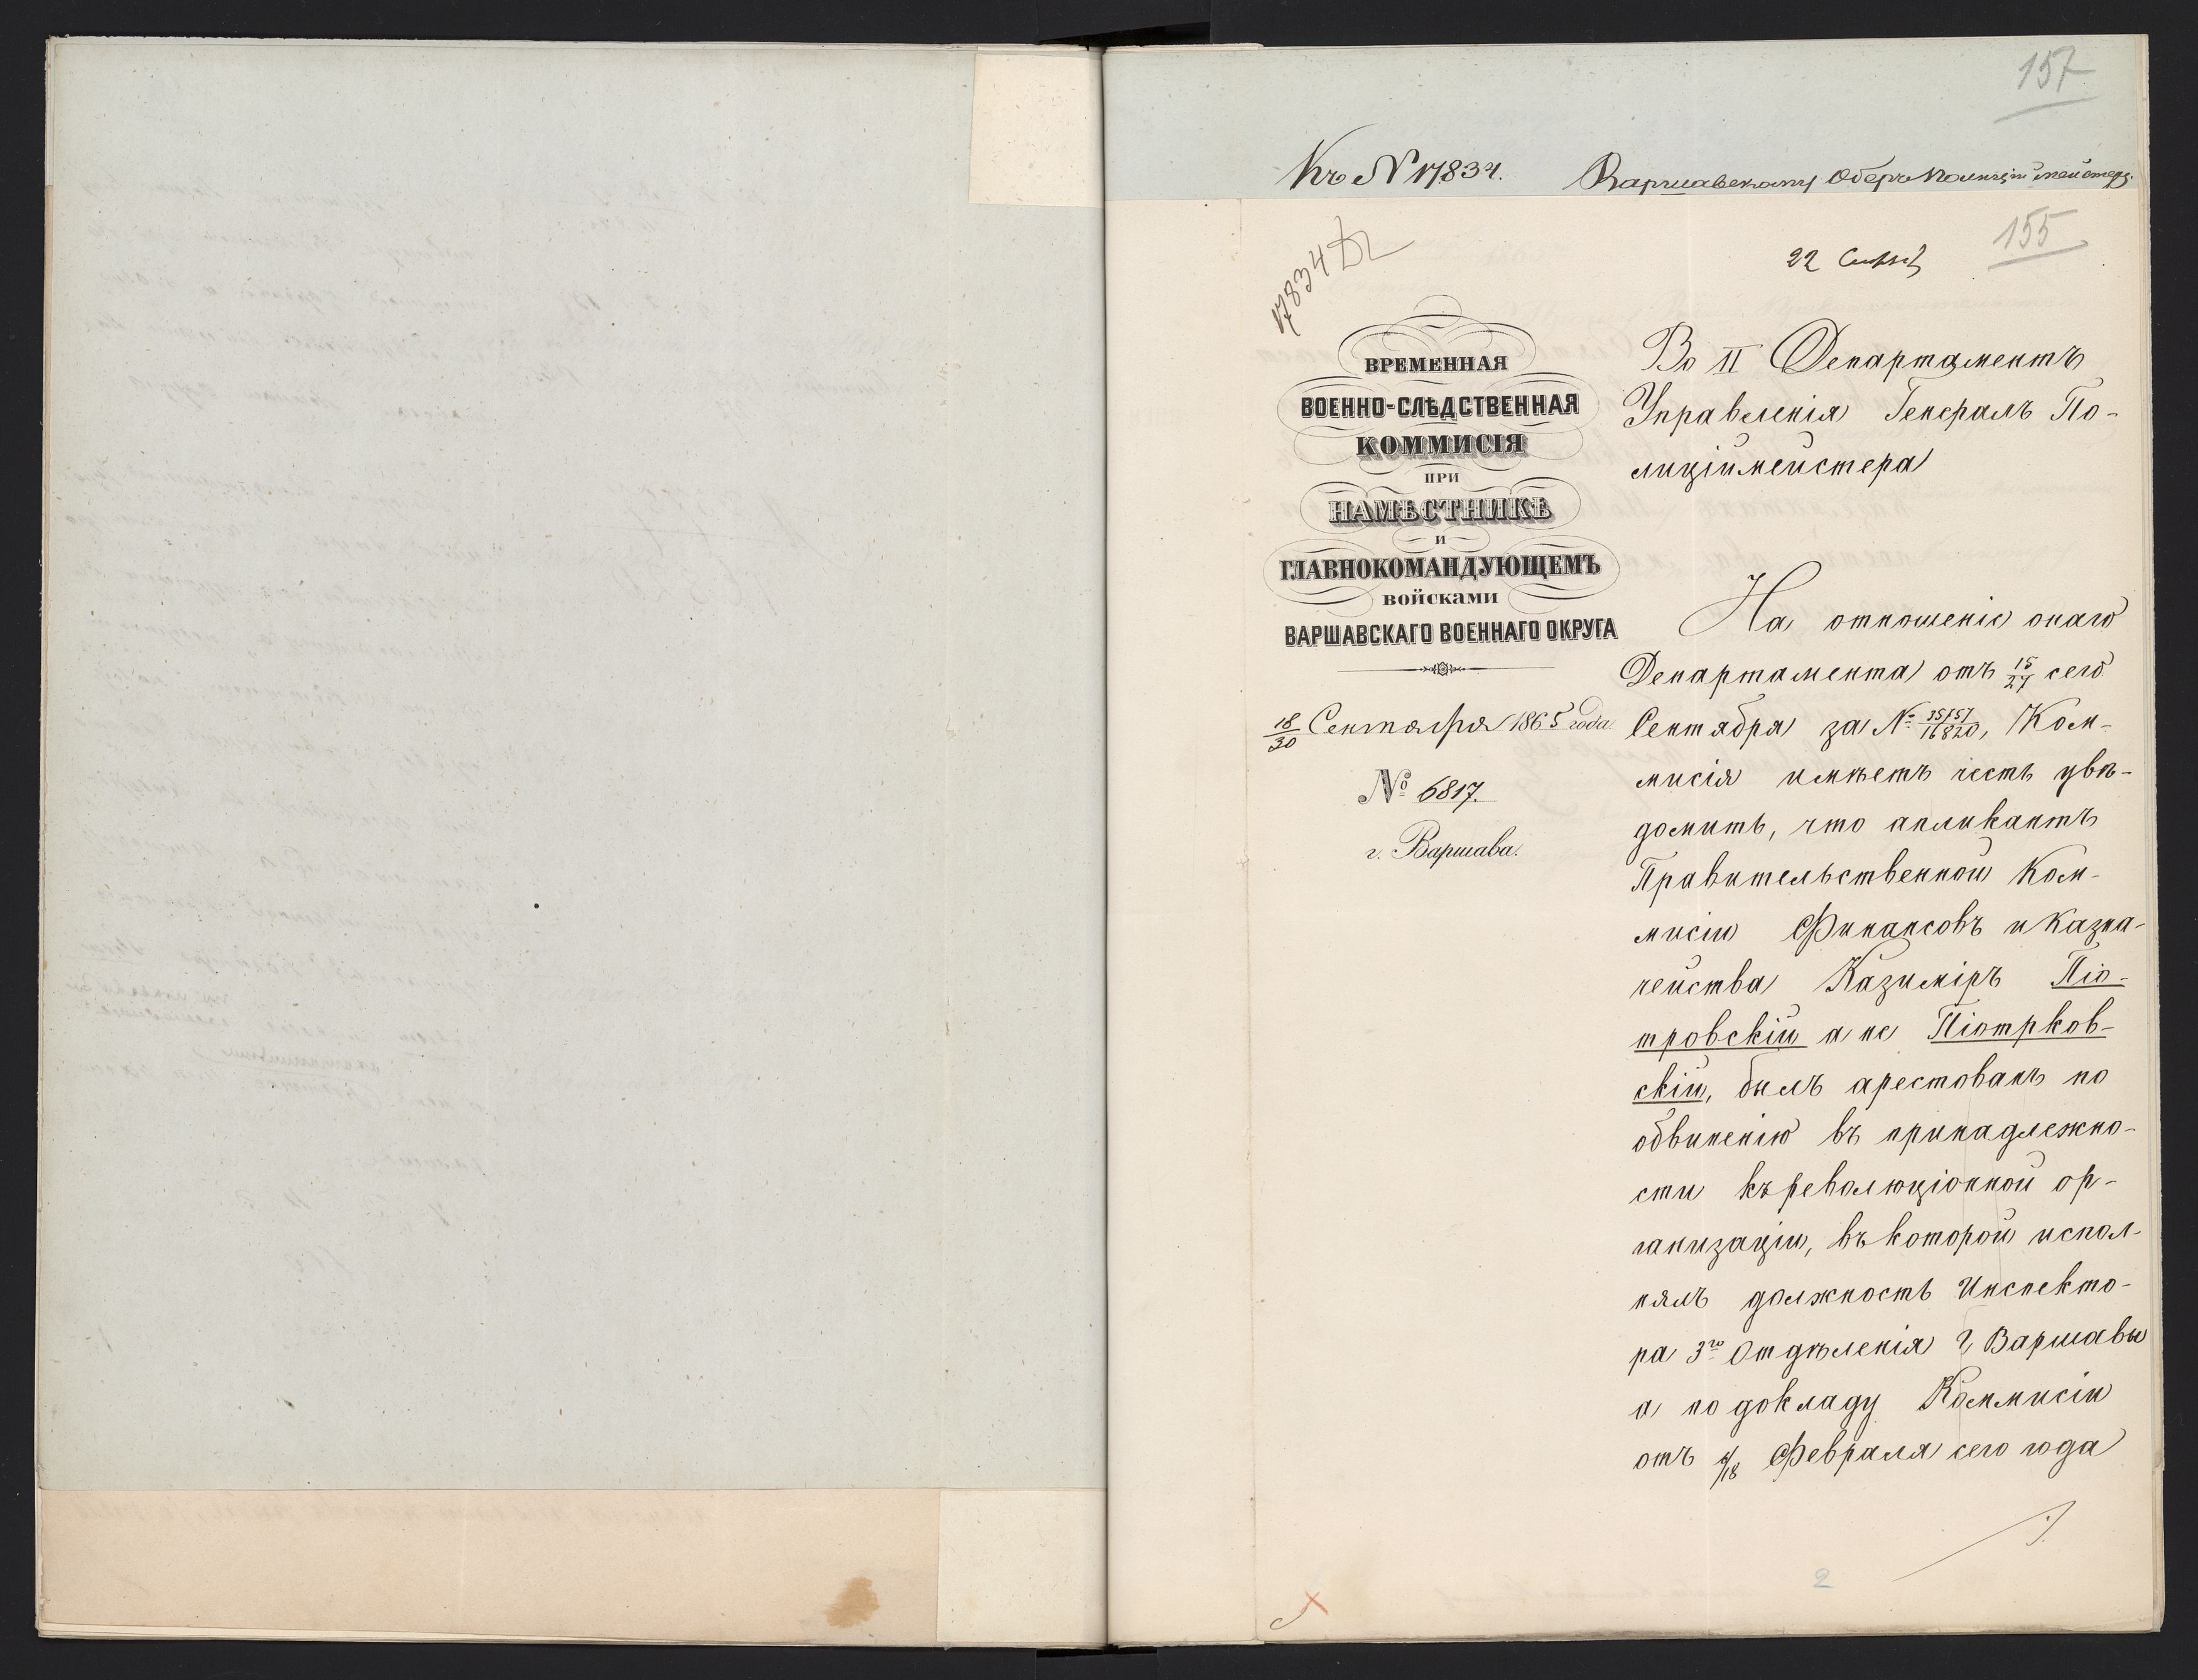 157
Къ № 17834. Варшавскому Оберъ Полиціймейстеру.
155
17834
22 Сентяб
ВРЕМЕННАЯ
ВОЕННО-СЛѢДСТВЕННАЯ
КОММИСІЯ
ПРИ
НАМѢСТНИКѢ
И
ГЛАВНОКОМАНДУЮЩЕМЪ
ВОЙСКАМИ
ВАРШАВСКАГО ВОЕННАГО ОКРУГА
18/30 Сентября 1865 года.
№ 6817.
г. Варшава.
Во II Департаментъ
Управленія Генералъ По-
лиціймейстера
На отношеніе онаго
Департамента отъ 15/27 сего
Сентября за № 35157/16820, Ком-
мисія имѣетъ честь увѣ-
домить, что апликантъ
Правительственной Ком-
мисіи Финансовъ и Казна-
чейства Казиміръ Піо-
тровскій а не Піотрков-
скій, былъ арестованъ по
обвиненію въ принадлежно-
сти къ революціонной ор-
ганизаціи, въ которой испол-
нялъ должность Инспекто-
ра 3го Отдѣленія г. Варшавы
а по докладу Коммисіи
отъ 6/18 Февраля сего года
2